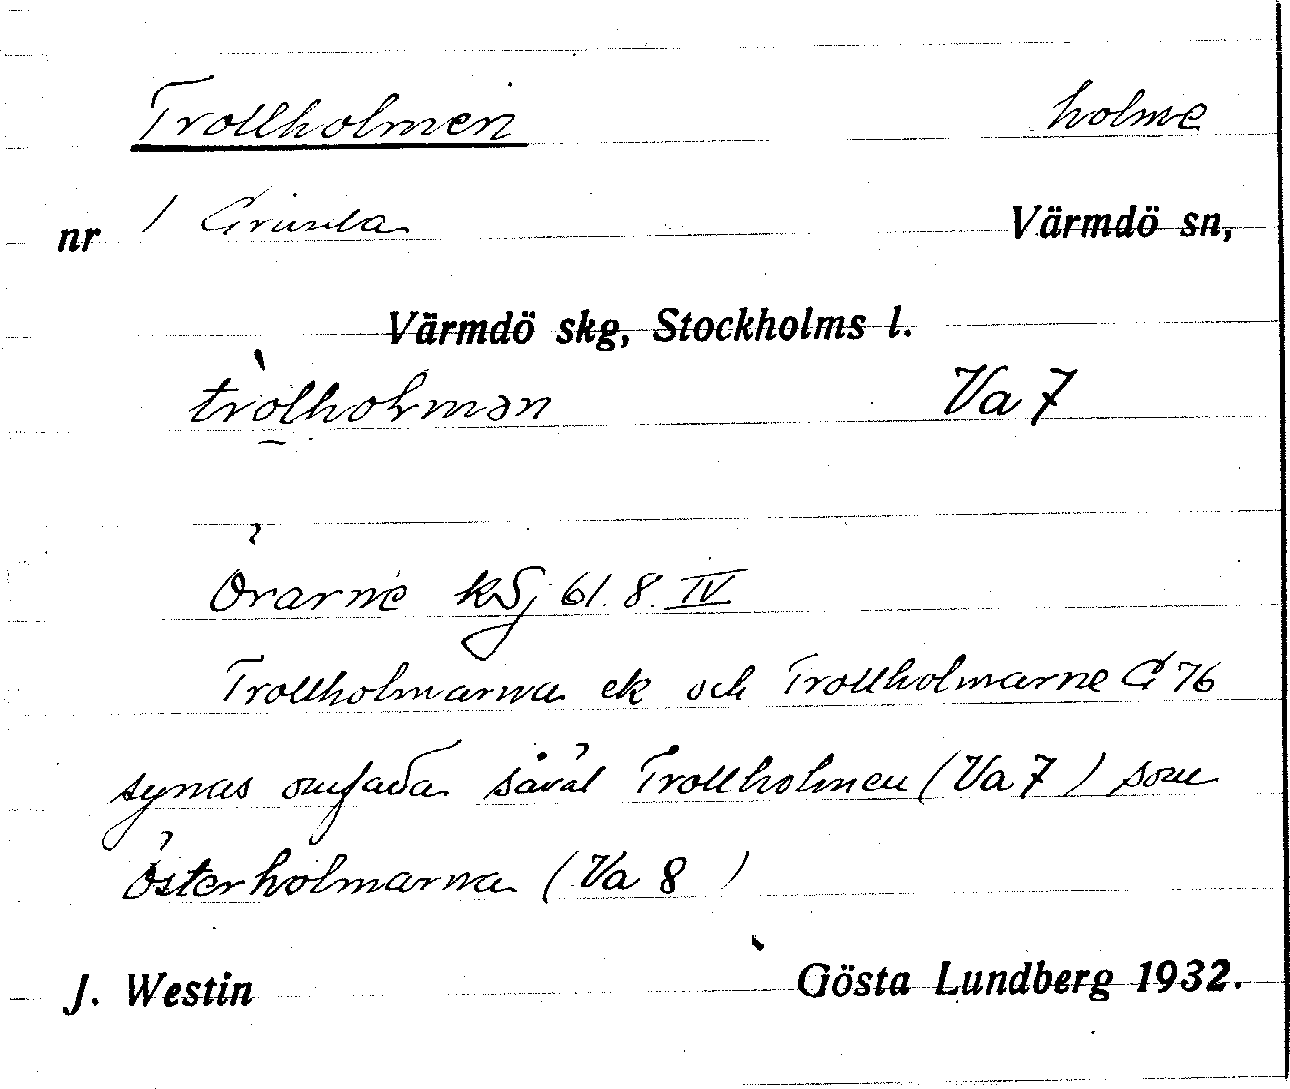 Trollholmen holme
nr 1 Grinda Värmdö sn,
Värmdö skg, Stockholms l.
tròlholmən Va 7
Örarne kSj 61. 8. IV
Trollholmarna ek och Trollholmarne G 76
synas omfatta såväl Trollholmen (Va 7) som
Österholmarna (Va 8)
J. Westin Gösta Lundberg 1932.